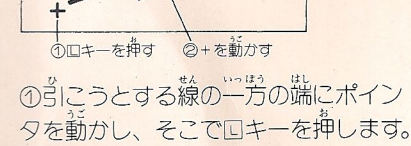 ①🄻キーを押す ②+を動かす
①引こうとする線の一方の端にポイン
タを動かし、そこで🄻キーを押します。